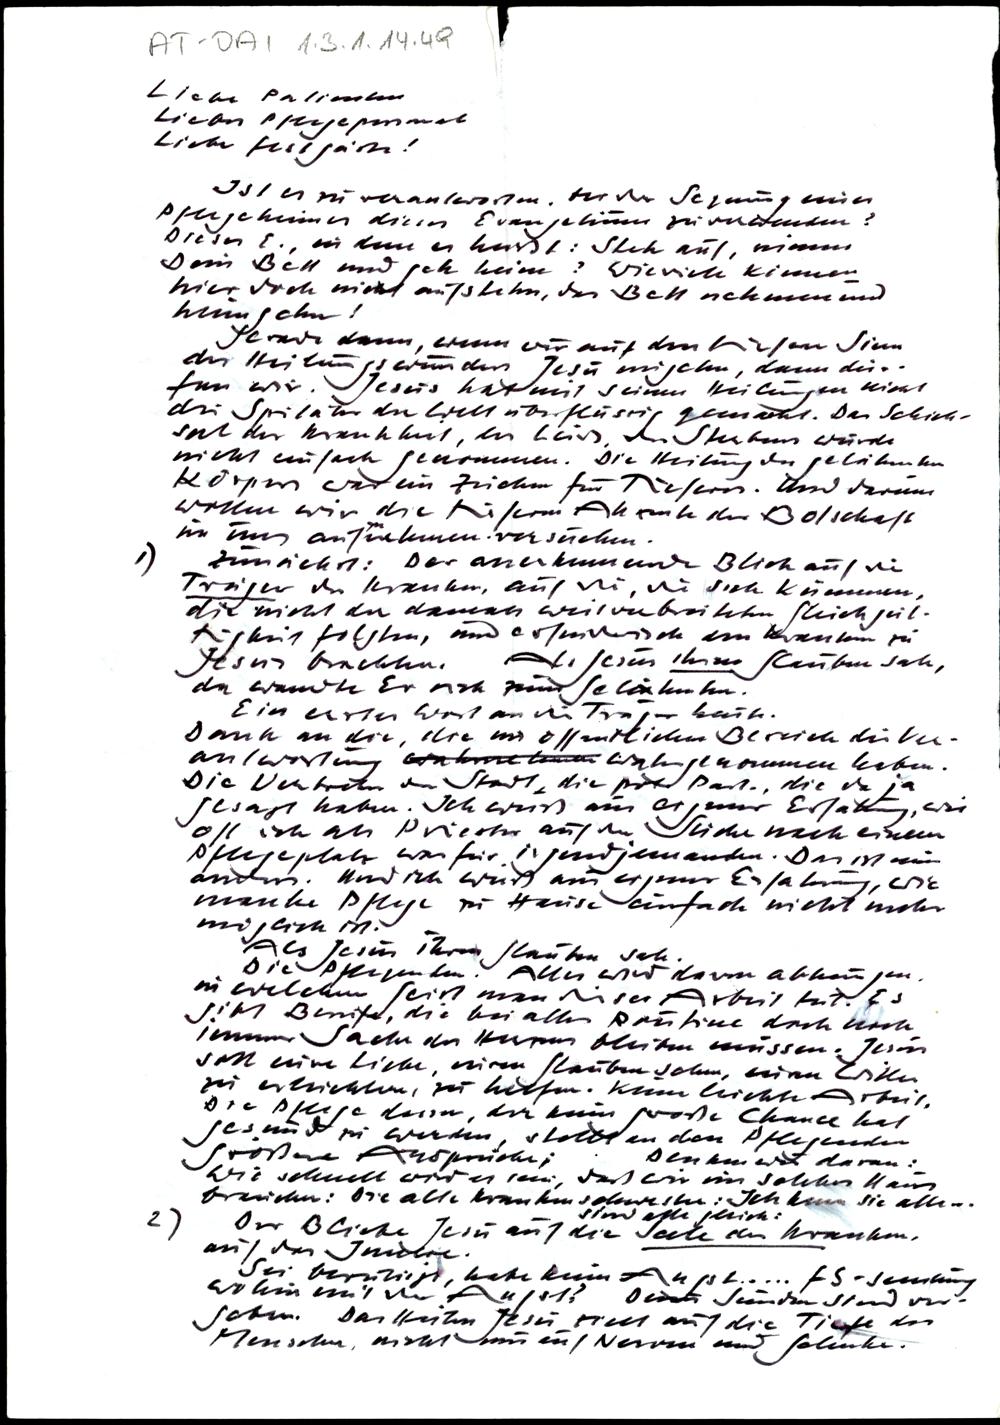 AT-DAI 1.3.1.14.49
Liebe Patienten
Liebes Pflegepersonal
Liebe Festgäste!
Ist es zu verantworten, bei der Segnung eines
Pflegeheimes dieses Evangelium zu verwenden?
Dieses E., in dem es heißt: Steh auf, nimm
Dein Bett und geh heim? Wieviele können
hier doch nicht aufstehn, das Bett nehmen und
heimgehn!
Gerade dann, wenn wir auf den tiefen Sinn
des Heilungswunders Jesu eingehn, dann dür-
fen wir. Jesus hat mit seinen Heilungen nicht
die Spitäler der Welt überflüssig gemacht. Das Schick-
sal der Krankheit, des Leids, des Sterbens wurde
nicht einfach genommen. Die Heilung des gelähmten
Körpers war ein Zeichen für Tieferes. Und darum
wollen wir die tieferen Akzente der Botschaft
in uns aufzunehmen versuchen.
1) Zunächst: Der anerkennende Blick auf die
Träger des Kranken, auf die, die sich kümmern,
die nicht der damals weitverbreiteten Gleichgül-
tigkeit folgten, und erfinderisch den Kranken zu
Jesus brachten. Als Jesus ihren Glauben sah,
da wandte Er sich zum Gelähmten.
Ein erstes Wort an die Träger heute.
Dank an die, die im öffentlichen Bereich die Ver-
antwortung wahrgenommen haben.
Die Vertreter der Stadt, die Part., die da ja
gesagt haben. Ich weiß aus eigener Erfahrung, wie
oft ich als Priester auf der Suche nach einem
Pflegeplatz war für irgendjemanden. Das ist nun
anders. Und ich weiß aus eigener Erfahrung, wie
manche Pflege zu Hause einfach nicht mehr
möglich ist.
Als Jesus ihren Glauben sah.
Die Pflegenden. Alles wird davon abhängen,
in welchem Geist man diese Arbeit tut. Es
gibt Berufe, die bei aller Routine doch noch
immer Sache des Herzens bleiben müssen. Jesus
soll eure Liebe, euren Glauben sehn, euren Willen
zu erleichtern, zu helfen. Keine leichte Arbeit.
Die Pflege dessen, der keine große Chance hat
gesund zu werden, stellt an den Pflegenden
größere Ansprüche; Denken wir daran:
Wie schnell wird es sein, daß wir ein solches Haus
brauchen: Die alte Krankenschwester: Ich kenn sie alle...
sind alle gleich:
2) Der Blick Jesu auf die Seele des Kranken,
auf das Innere.
Sei beruhigt, habe keine Angst..... FS-sendung
wohin mit der Angst? Deine Sünden sind ver-
geben. Das Heilen Jesu zielt auf die Tiefe des
Menschen, nicht nur auf Nerven und Gelenke.